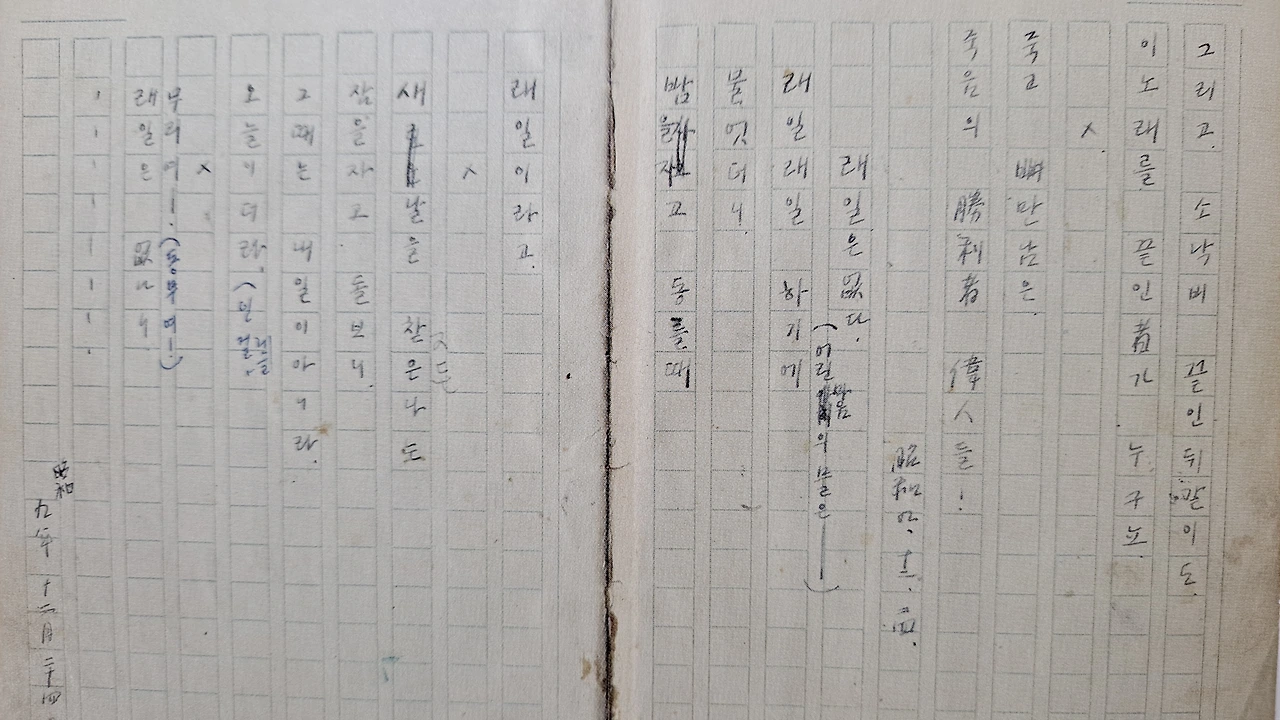 그리고. 소낙비 끝인뒤같이도
이노래를 끝인者가 누구뇨.
×
죽고 뼈만남은
죽음의 勝利者 偉人들!
昭和 九. 十二. 二四.
래일은없다.
(어린마음의 물은———)
래일래일 하기에
물엇더니
밤을자고 동틀때
래일이라고.
×
새날을 찯은나도
(든)
잠을자고. 돌보니.
그때는 내일이아니라.
오늘이더라.
×
무리여! (동무여!)
래일은 없나니
昭和九年 十二月 二十四